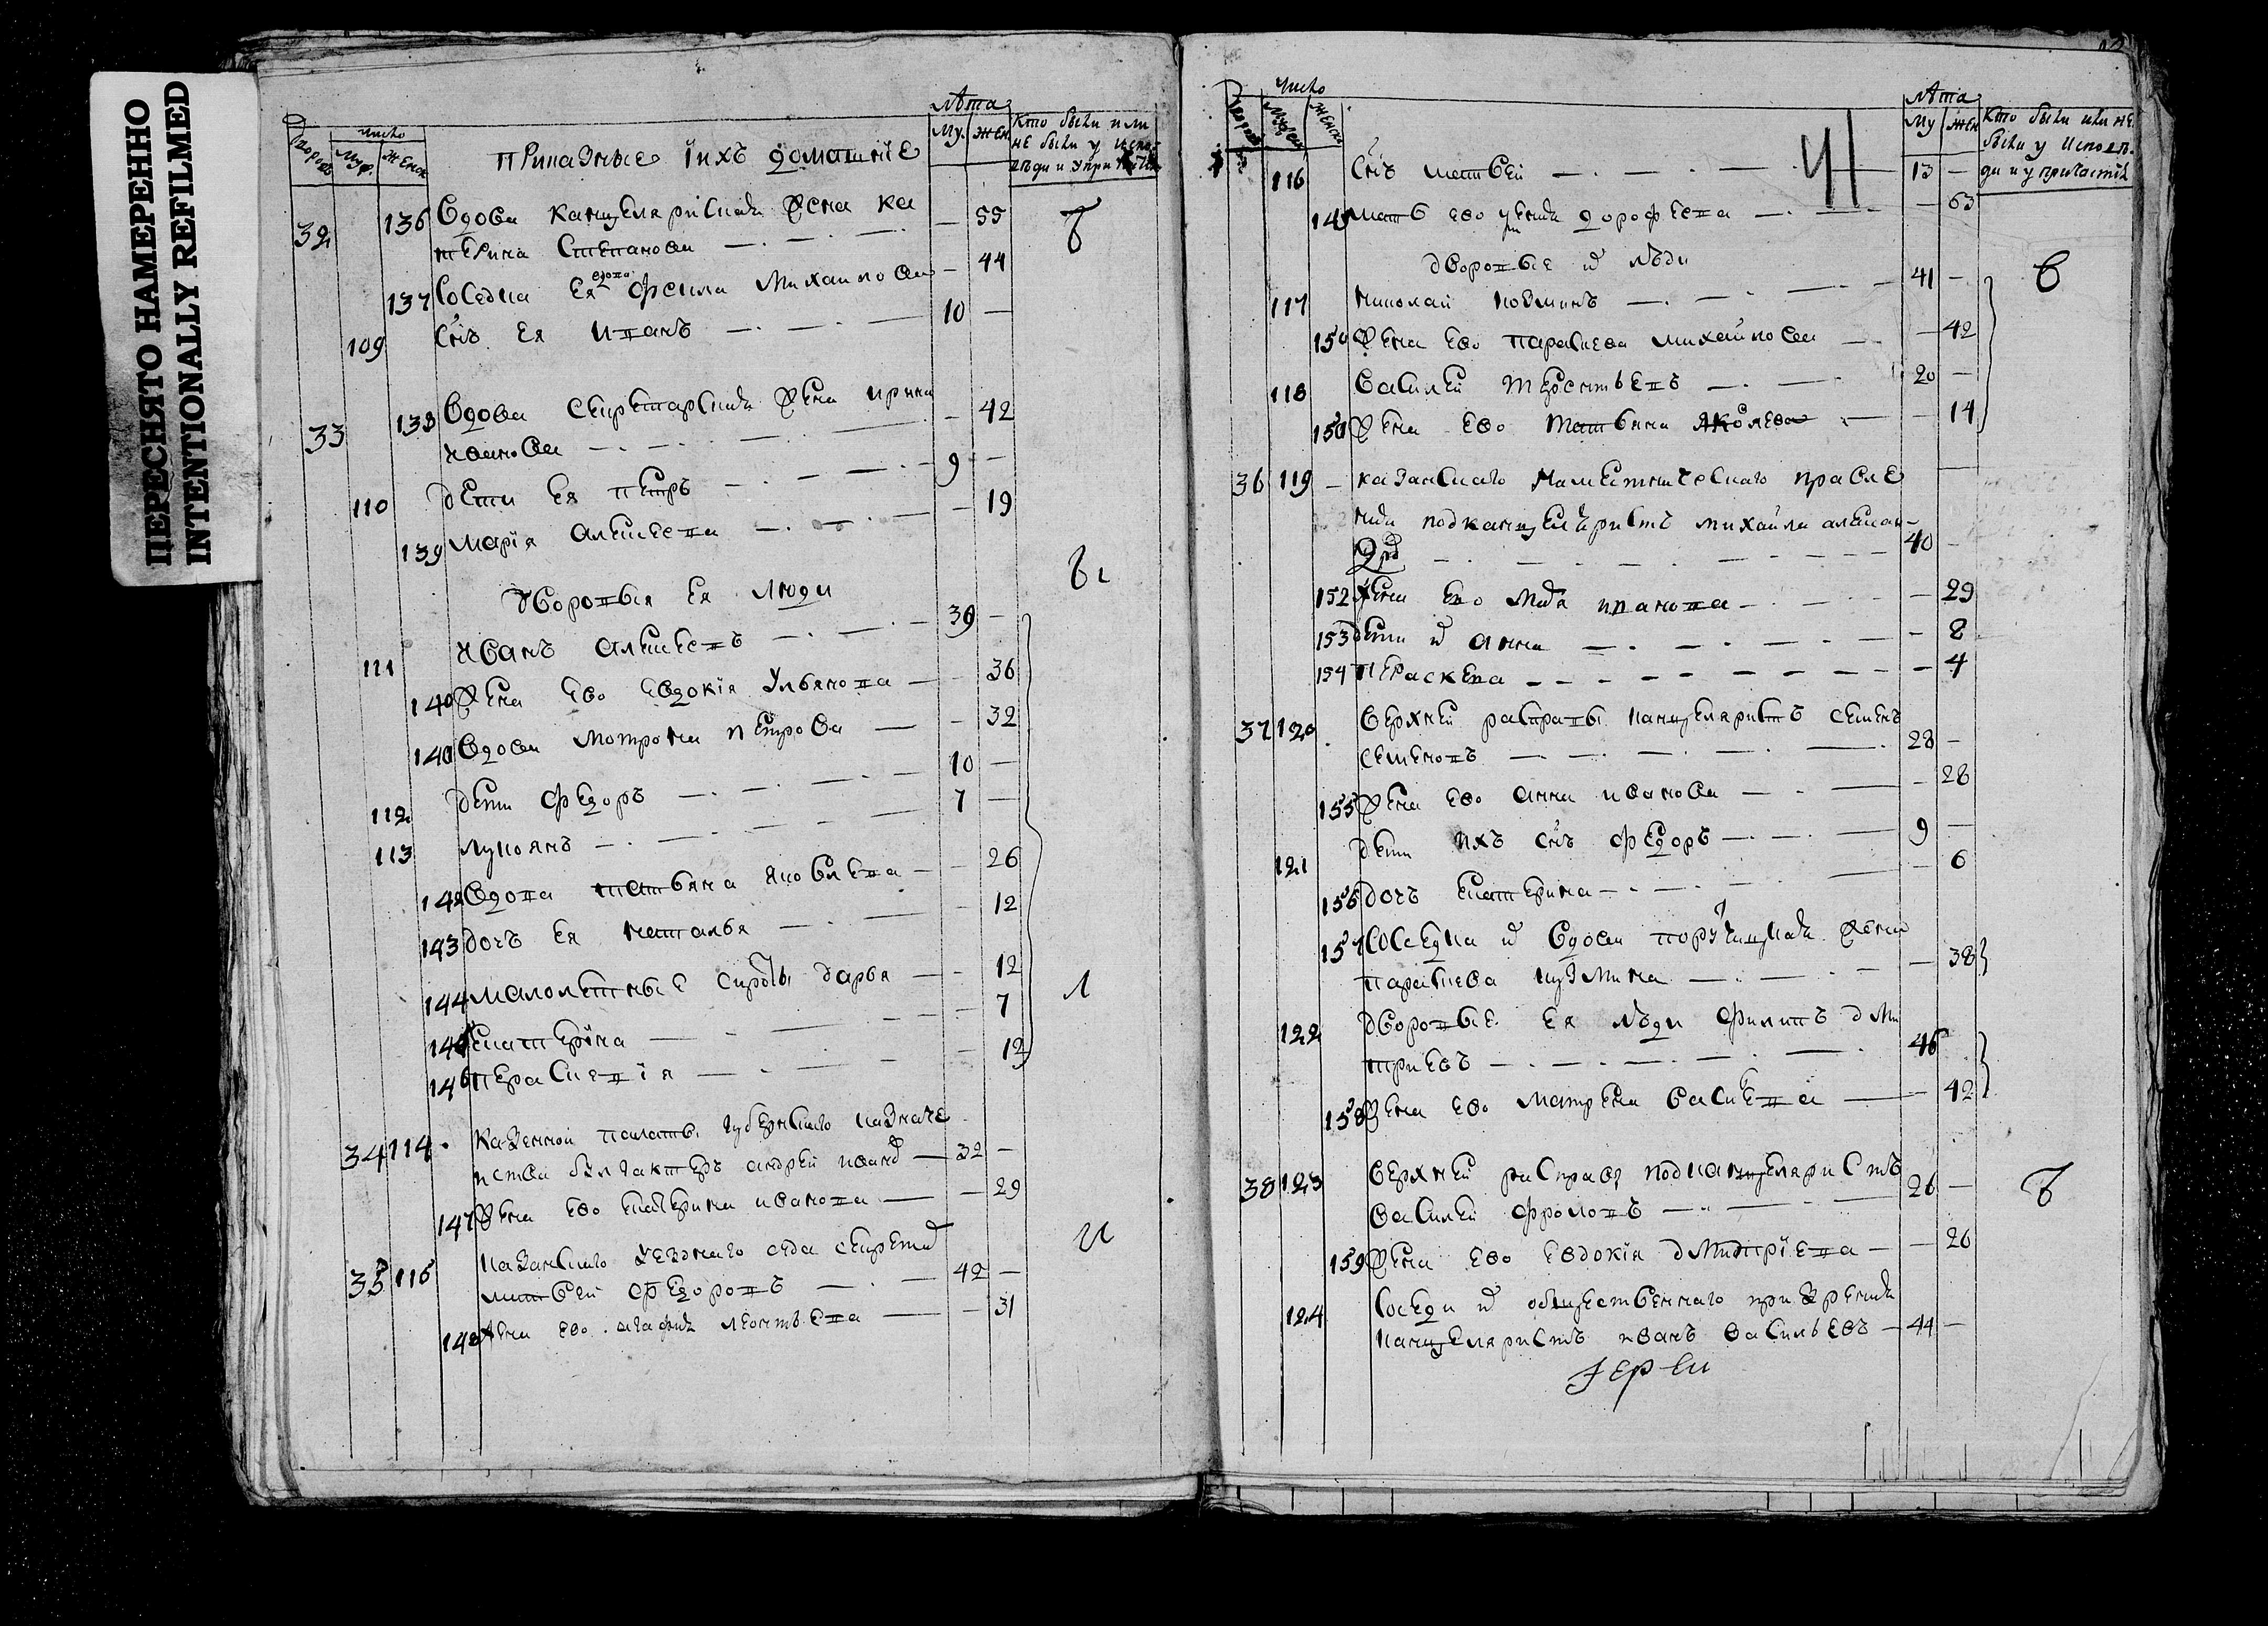 ПЕРЕСНЯТО НАМЕРЕННО
INTENTIONALLY REFILMED
число
лѣта
дворовъ
Муж.
Женск
Приказные ихъ домашнiе
Му.
жен
Кто были или
не были у испо
вѣди и у при
32 136 Вдова канцеляриская жена ка
терина Степанова — 55
137 Соседка ея вдова Фекла Михаилова — 44
109 Снъ ея Иванъ 10 —
33 138 Вдова секретарская жена ирина
иванова — 42
110 дети ея петръ 9 —
139 марїя алексеева — 19
дворовыя ея люди
111 иванъ алексеевъ 39 —
140 жена ево евдокiя ульянова — 36
140 вдова мотрона петрова — 32
112 дети федоръ 10 —
113 лукоянъ 7 —
142 вдова татьяна яковлева — 26
143 дочъ ея наталья — 12
144 малолетные сироты дарья — 12
145 катерїна — 7
146 перасковїя — 12
34 114 казенной палаты губернскаго казначе
иства бухгактеръ андрей иванов 32 —
147 жена ево катерина иванова — 29
35 115 казанскаго уезднаго суда секретар
матвей федоровъ 42 —
148 жена ево агафия леонтьева — 31
число
лѣта
Женско
Му
жен
Кто были или не
были у исповѣ
ди и у причастiя
116 Снъ матвей 13 —
41
149 мать ево дорофеева — 63
дворовые их люди
117 николай козминъ 41 —
150 жена ево параскева михайлова — 42
118 василей терентьевъ 20 —
150 жена ево татьяна яколева — 14
36 119 казанскаго наместническаго правле
ния подканцеляристъ михайла алексан
40 —
152 жена ево иванова — 29
153 дети их анна — 8
154 пераскева — 4
37 120 верхней расправы канцеляристъ семенъ
семеновъ 28 —
155 жена ево анна иванова — 28
121 дети ихъ снъ федоръ 9 —
156 дочъ катерина — 6
157 соседка их вдова порутчицкая жена
параскева кузмина — 38
122 дворовые ея люди филипъ дми
триевъ 46
158 жена ево матрена васильева — 42
38 123 верхней расправы подканцеляристъ
василей фроловъ 26 —
159 жена ево евдокiя дмитрїева — 26
124 соседи их общественнаго призрения
канцеляристъ иванъ васильевъ 44 —
iерей